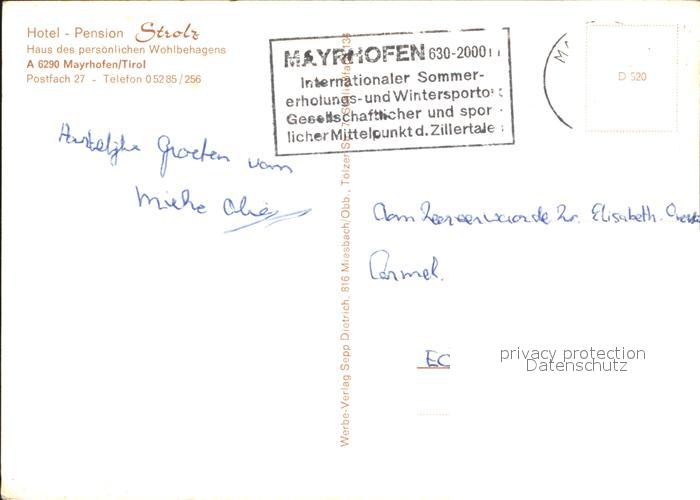 Hotel - Pension Strolz
Haus des persönlichen Wohlbehagens
A 6290 Mayrhofen/Tirol
Postfach 27 - Telefon 05285/256
MAYRHOFEN 630-2000
Internationaler Sommer-
erholungs-und Wintersporto
Gesellschaftlicher und spor
licher Mittelpunkt d. Zillertale
M
D 520
Hartelijke Groeten van
Mieke
Aan Zeereerwaarde Zr. Elisabeth.
Carmel.
EC
privacy protection
Datenschutz
Werbe-Verlag Sepp Dietrich, 816 Miesbach/Obb., Tölzer